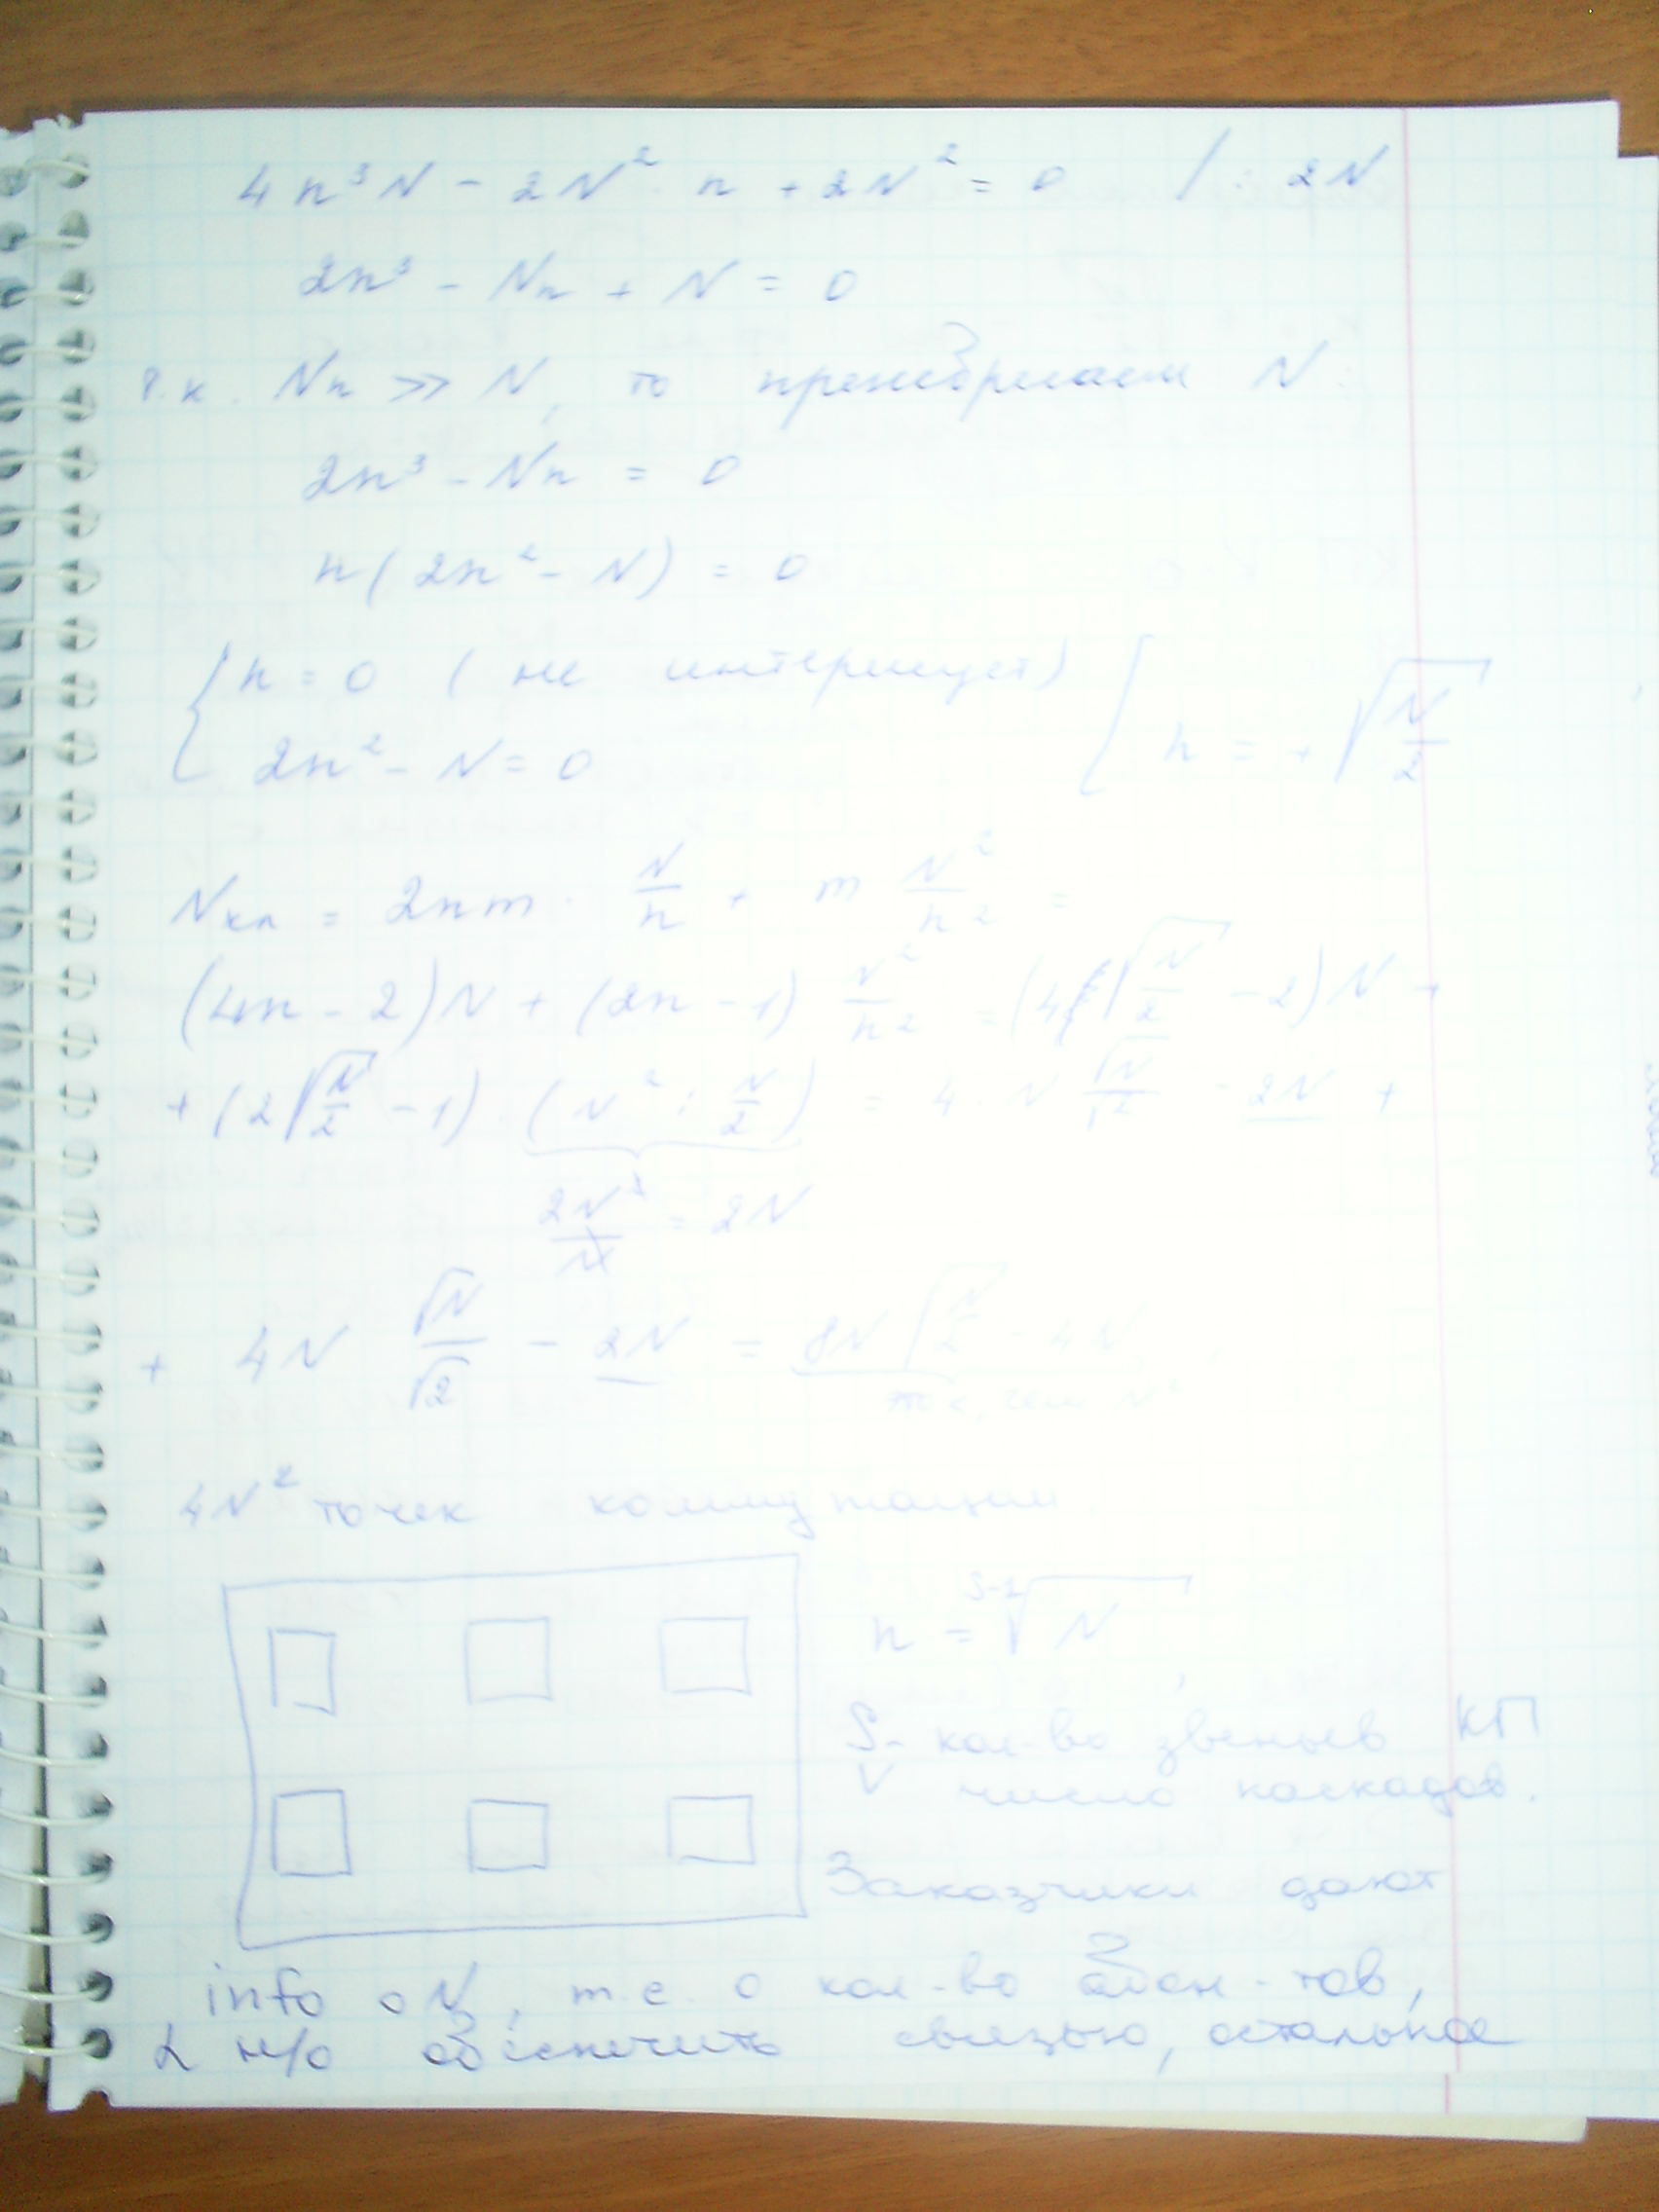 4n³N - 2N²·n + 2N² = 0 /: 2N
2n³ - Nn + N = 0
т.к. Nn >> N, то пренебрегаем N:
2n³ - Nn = 0
n(2n² - N) = 0
{ n = 0 (не интересует)
2n² - N = 0 [ n = + √(N/2)
Nкп = 2nm · N/n + m N²/n² =
(4n - 2)N + (2n - 1) N²/n² = (4√(N/2) - 2)N +
+ (2√(N/2) - 1) · (N² : N/2) = 4 · N √N/√2 - 2N +
2N²/N = 2N
+ 4N √N/√2 - 2N = 8N √(N/2) - 4N
это <, чем N²
4N² точек коммутации
n = ˢ⁻¹√N,
S - кол-во звеньев КП
V число каскадов.
Заказчики дают
info о N, т.е. о кол-во абон-тов,
н/о обеспечить связью, остальное